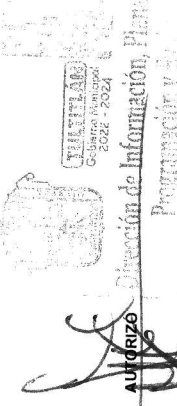 TULTITLÁN
Gobierno Municipal
2022 - 2024
Dirección de Información, Plan
Programación y
AUTORIZO